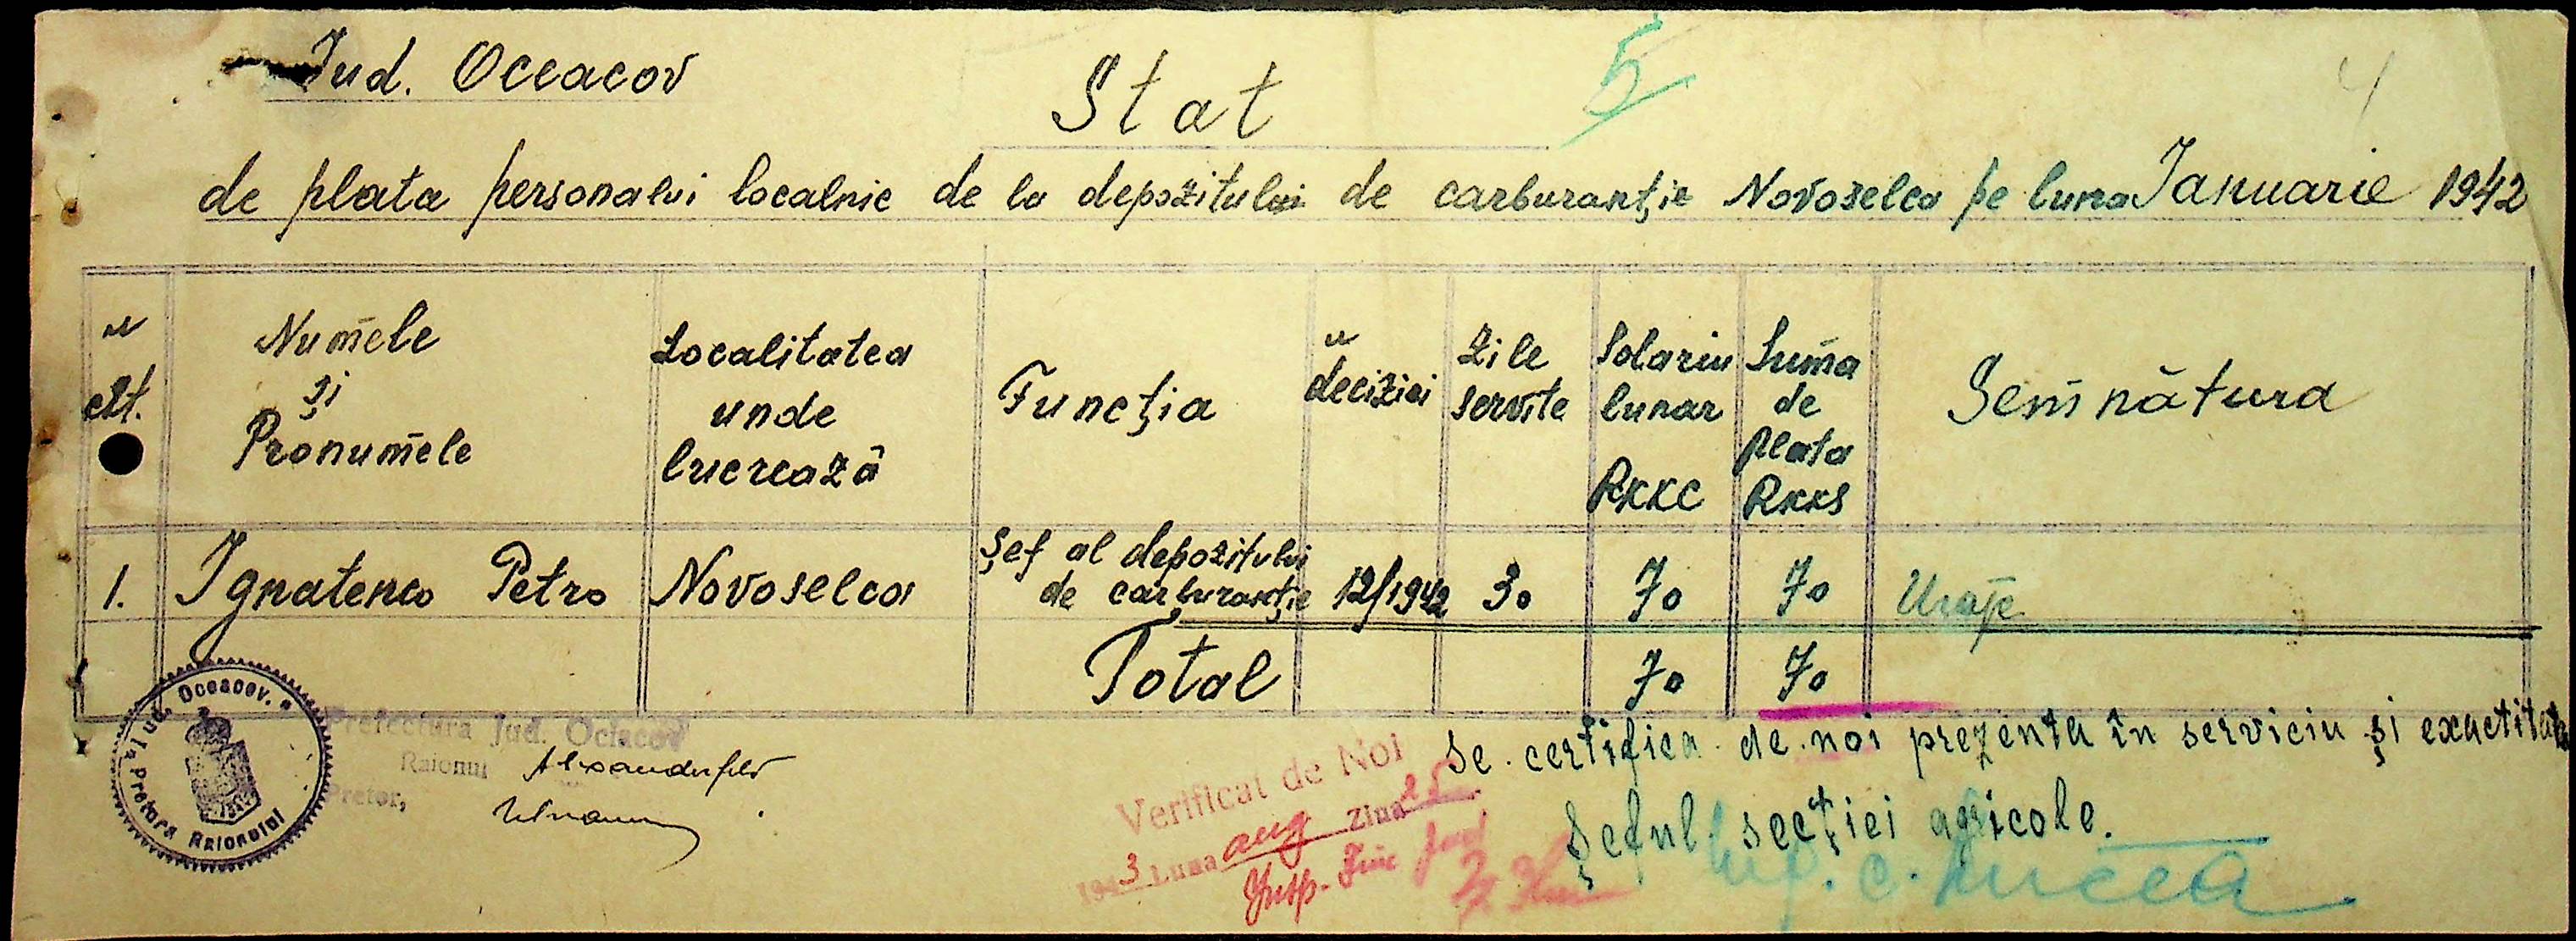 Jud. Oceacov
5
4
Stat
de plata personalui localnic de la depozitului de carburanţie Novoselca pe luna Januarie 1942
№ crt.
Numele şi Pronumele
Localitatea unde lucrează
Funcţia
№ deciziei
Zile servite
Solariu lunar RKKC
Suma de plata RKKS
Semnătura
1. Ignatenco Petro Novoselca Şef al depozitului de carburanţie 12/1942 30 70 70
Total 70 70
Jud. Oceacov.
Pretura Raionului
Prefectura Jud. Ociacov
Raionul Alexanderfeld
Pretor,
Verificat de Noi
1943 Luna aug Ziua 25
Insp. Fin
Se certifica de noi prezenta în serviciu şi exactitate
Şeful secţiei agricole.